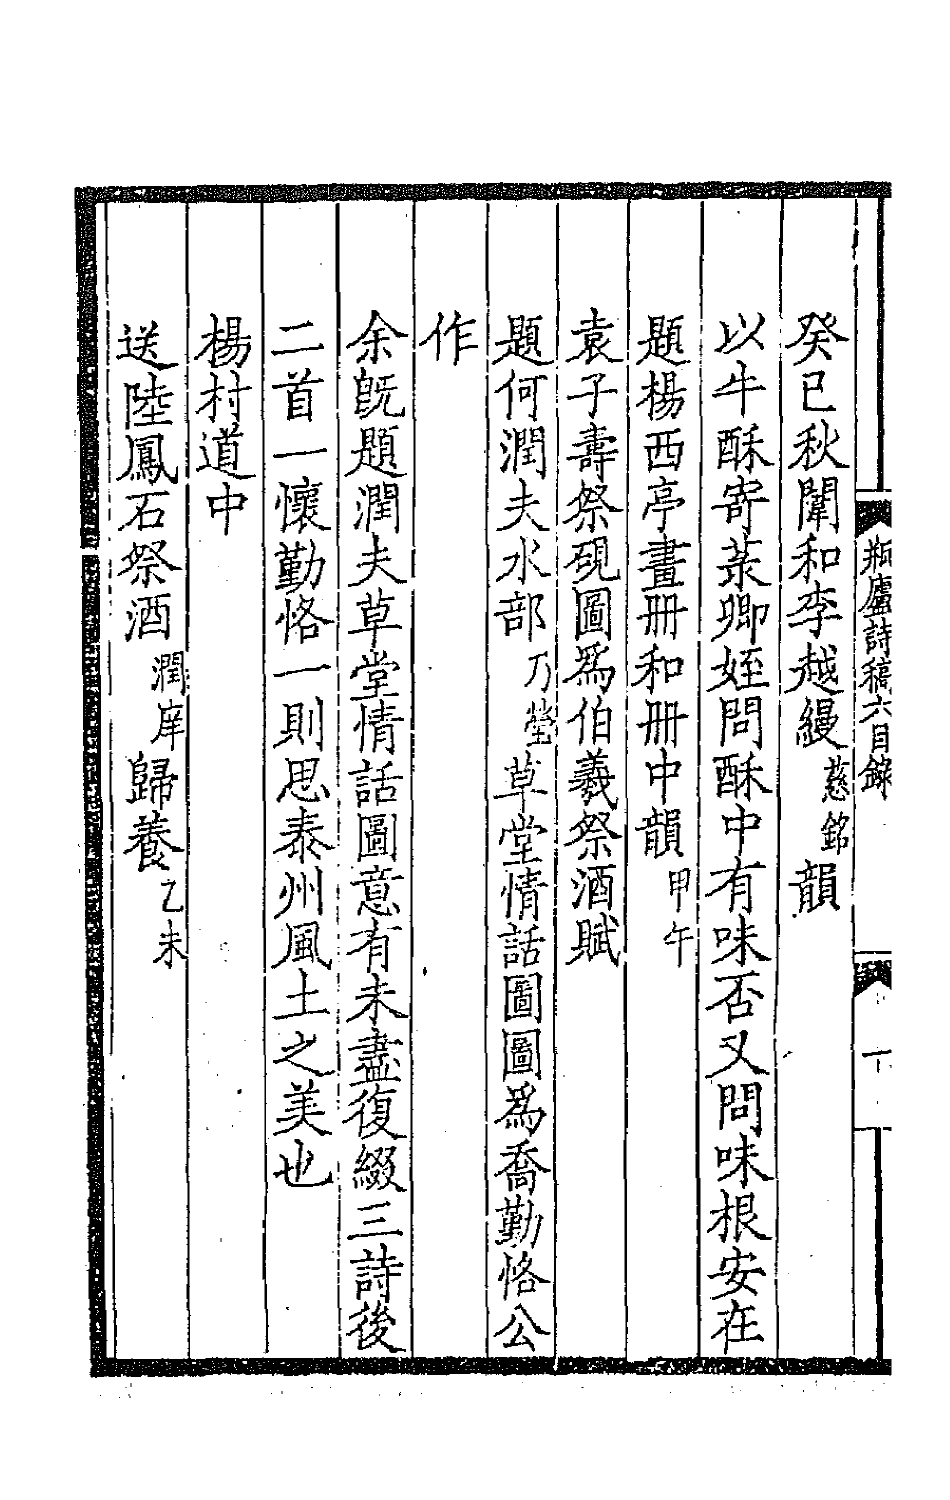 瓶廬詩稿六目錄
癸巳秋闈和李越縵慈銘韻
以牛酥寄菉卿姪問酥中有味否又問味根安在
題楊西亭畫册和册中韻甲午
袁子壽祭硯圖爲伯羲祭酒賦
題何潤夫水部乃瑩草堂情話圖圖爲喬勤恪公
作
余旣題潤夫草堂情話圖意有未盡復綴三詩後
二首一懷勤恪一則思泰州風土之美也
楊村道中
送陸鳳石祭酒潤庠歸養乙未